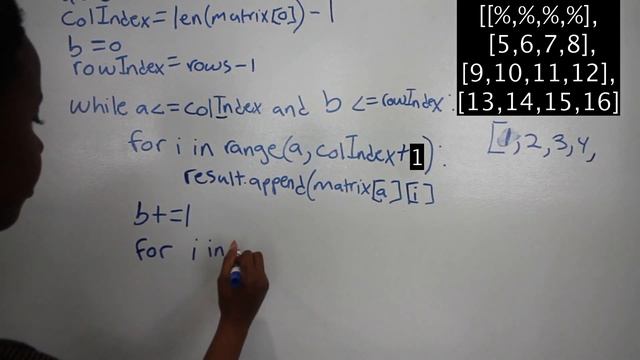 colIndex=len(matrix[0])-1
b=0
rowIndex=rows-1
while a<=colIndex and b<=rowIndex:
for i in range(a, colIndex+1):
result.append(matrix[a][i]
b+=1
for i in
[[%,%,%,%],
[5,6,7,8],
[9,10,11,12],
[13,14,15,16]
[1,2,3,4,